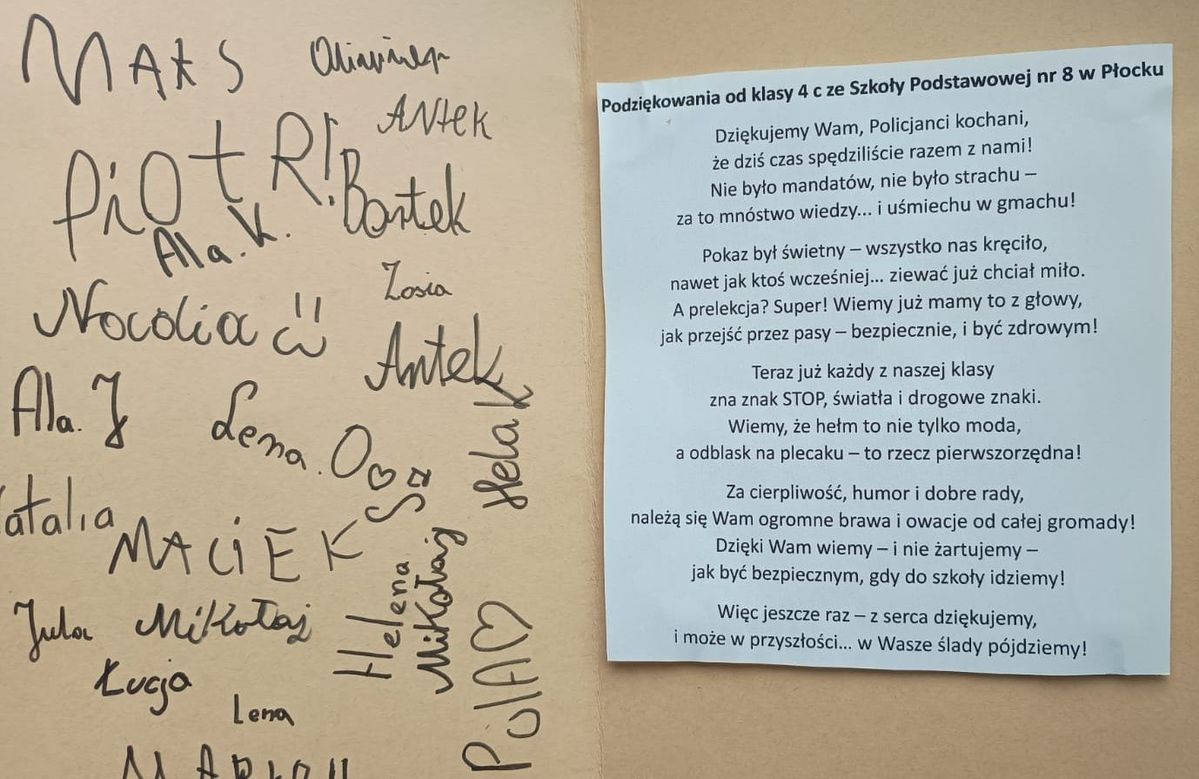 MAKS
Oliwier
ANtek
PiOtR!
Bartek
Ala.K.
Zosia
Nocolia
Antek
Ala.J
Lena.O
Hela K
atalia
MACIEK
Helena
Mikołaj
Jula
Mikołaj
Łucja
POlA
Lena
Podziękowania od klasy 4 c ze Szkoły Podstawowej nr 8 w Płocku
Dziękujemy Wam, Policjanci kochani,
że dziś czas spędziliście razem z nami!
Nie było mandatów, nie było strachu –
za to mnóstwo wiedzy... i uśmiechu w gmachu!
Pokaz był świetny – wszystko nas kręciło,
nawet jak ktoś wcześniej... ziewać już chciał miło.
A prelekcja? Super! Wiemy już mamy to z głowy,
jak przejść przez pasy – bezpiecznie, i być zdrowym!
Teraz już każdy z naszej klasy
zna znak STOP, światła i drogowe znaki.
Wiemy, że hełm to nie tylko moda,
a odblask na plecaku – to rzecz pierwszorzędna!
Za cierpliwość, humor i dobre rady,
należą się Wam ogromne brawa i owacje od całej gromady!
Dzięki Wam wiemy – i nie żartujemy –
jak być bezpiecznym, gdy do szkoły idziemy!
Więc jeszcze raz – z serca dziękujemy,
i może w przyszłości... w Wasze ślady pójdziemy!